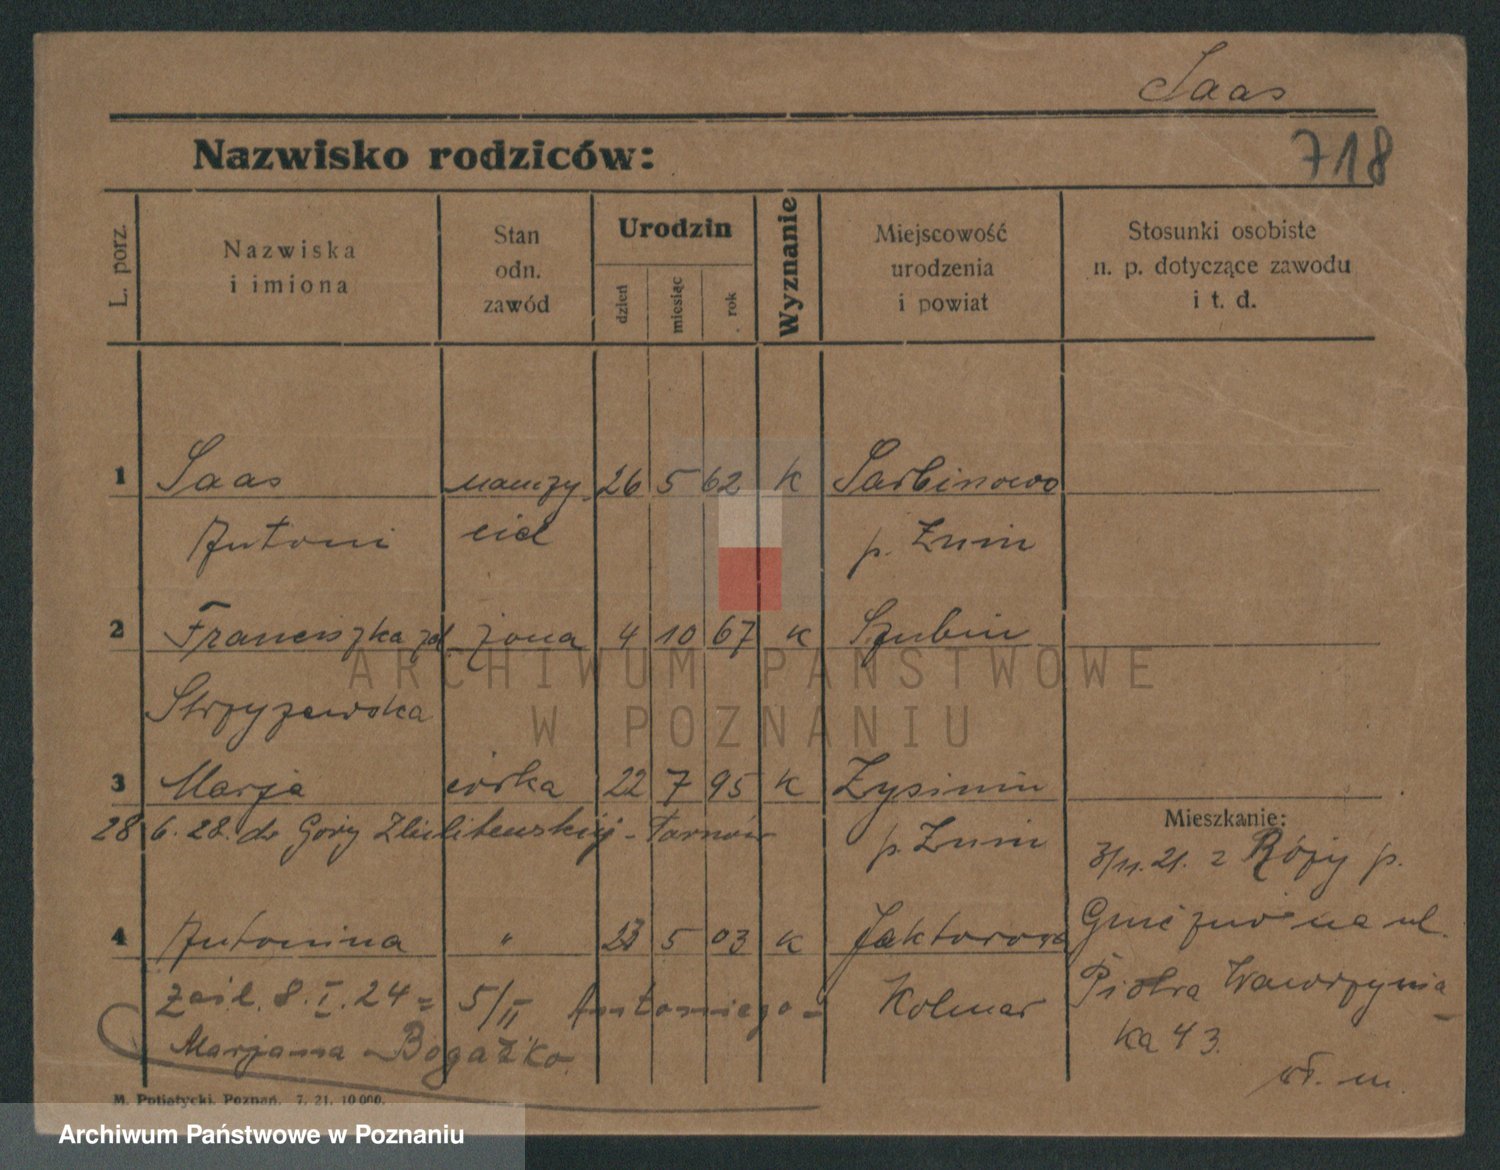 Saas
718
Nazwisko rodziców:
L. porz.
Nazwiska
i imiona
Stan
odn.
zawód
Urodzin
dzień
miesiąc
rok
Wyznanie
Miejscowość
urodzenia
i powiat
Stosunki osobiste
n. p. dotyczące zawodu
i t. d.
1 Saas 26 5 62 k Sarbinowo
Antoni ciel p. Żnin
2 Franciszka żona 4 10 67 k Szubin
Strzyżewska
ARCHIWUM PAŃSTWOWE
W POZNANIU
3 Marja córka 22 7 95 k
28 6. 28. do Góry - Tarnów p. Żnin
Mieszkanie:
3/11. 21. z Róży p.
4 Antonina " 5 03 k Jaktorowo
na ul.
zaśl. 8. I. 24 = 5/II Antoniego - Kolmar
Piotra Wawrzynia-
Marjana - Bogaźko.
ka 43.
wł. m.
M. Putiatycki, Poznań. 7. 21. 10 000.
Archiwum Państwowe w Poznaniu